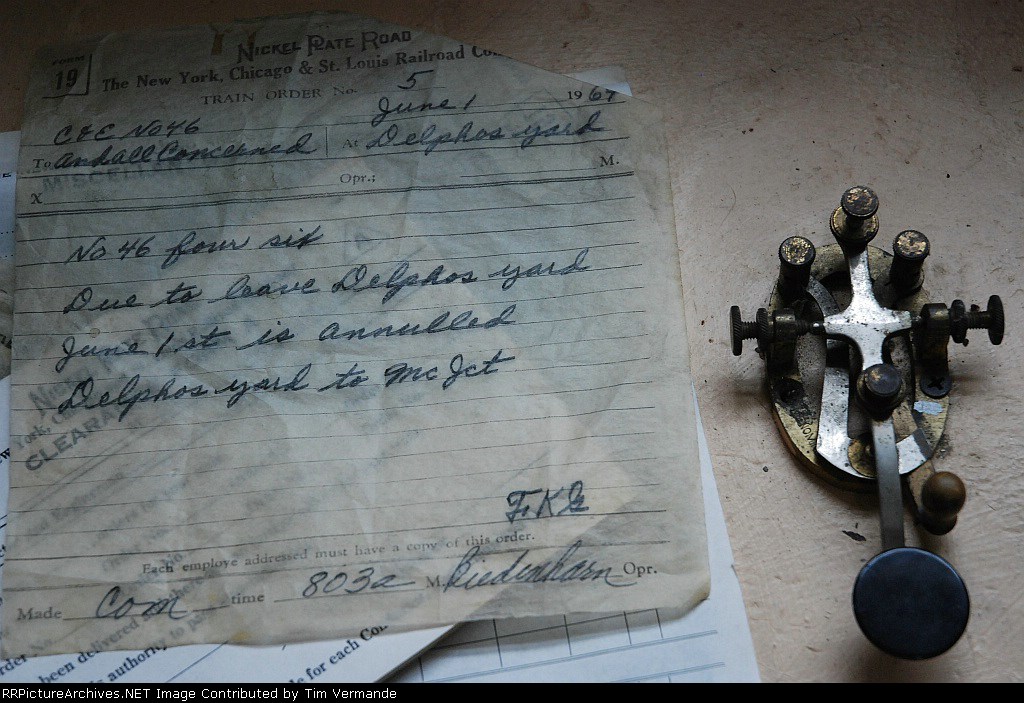 FORM
19
NICKEL PLATE ROAD
The New York, Chicago & St. Louis Railroad Co
TRAIN ORDER No. 5
June 1 1967
C&E No 46
To and all Concerned At Delphos yard
X Opr.; M.
No 46 four six
Due to leave Delphos yard
June 1st is annulled
Delphos yard to Mc Jct
York, C
CLEARA
FKG
Each employe addressed must have a copy of this order.
Made Com time 803a M. Biedenharn Opr.
been delivered a
s authority to pa
de for each Co
RRPictureArchives.NET Image Contributed by Tim Vermande